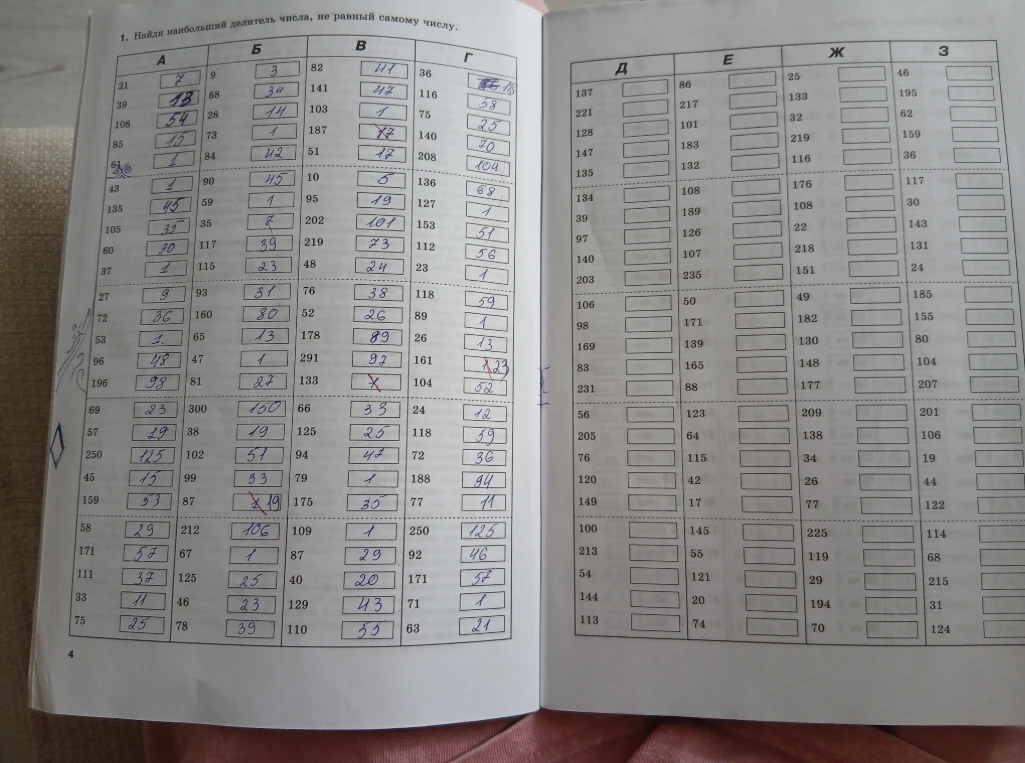 1. Найди наибольший делитель числа, не равный самому числу.
А Б В Г
21 7 9 3 82 41 36 18
39 13 68 34 141 47 116 58
108 54 28 14 103 1 75 25
85 15 73 1 187 17 140 70
61 1 84 42 51 17 208 104
43 1 90 45 10 5 136 68
135 45 59 1 95 19 127 1
105 35 35 7 202 101 153 51
60 30 117 39 219 73 112 56
37 1 115 23 48 24 23 1
27 9 93 31 76 38 118 59
72 36 160 80 52 26 89 1
53 1 65 13 178 89 26 13
96 48 47 1 291 97 161 1 23
196 98 81 27 133 1 104 52
69 23 300 150 66 33 24 12
57 19 38 19 125 25 118 59
250 125 102 51 94 47 72 36
45 15 99 33 79 1 188 94
159 53 87 1 19 175 35 77 11
58 29 212 106 109 1 250 125
171 57 67 1 87 29 92 46
111 37 125 25 40 20 171 57
33 11 46 23 129 43 71 1
75 25 78 39 110 55 63 21
4
Д Е Ж З
137 86 25 46
221 217 133 195
128 101 32 62
147 183 219 159
135 132 116 36
134 108 176 117
39 189 108 30
97 126 22 143
140 107 218 131
203 235 151 24
106 50 49 185
98 171 182 155
169 139 130 80
83 165 148 104
231 88 177 207
56 123 209 201
205 64 138 106
76 115 34 19
120 42 26 44
149 17 77 122
100 145 225 114
213 55 119 68
54 121 29 215
144 20 194 31
113 74 70 124